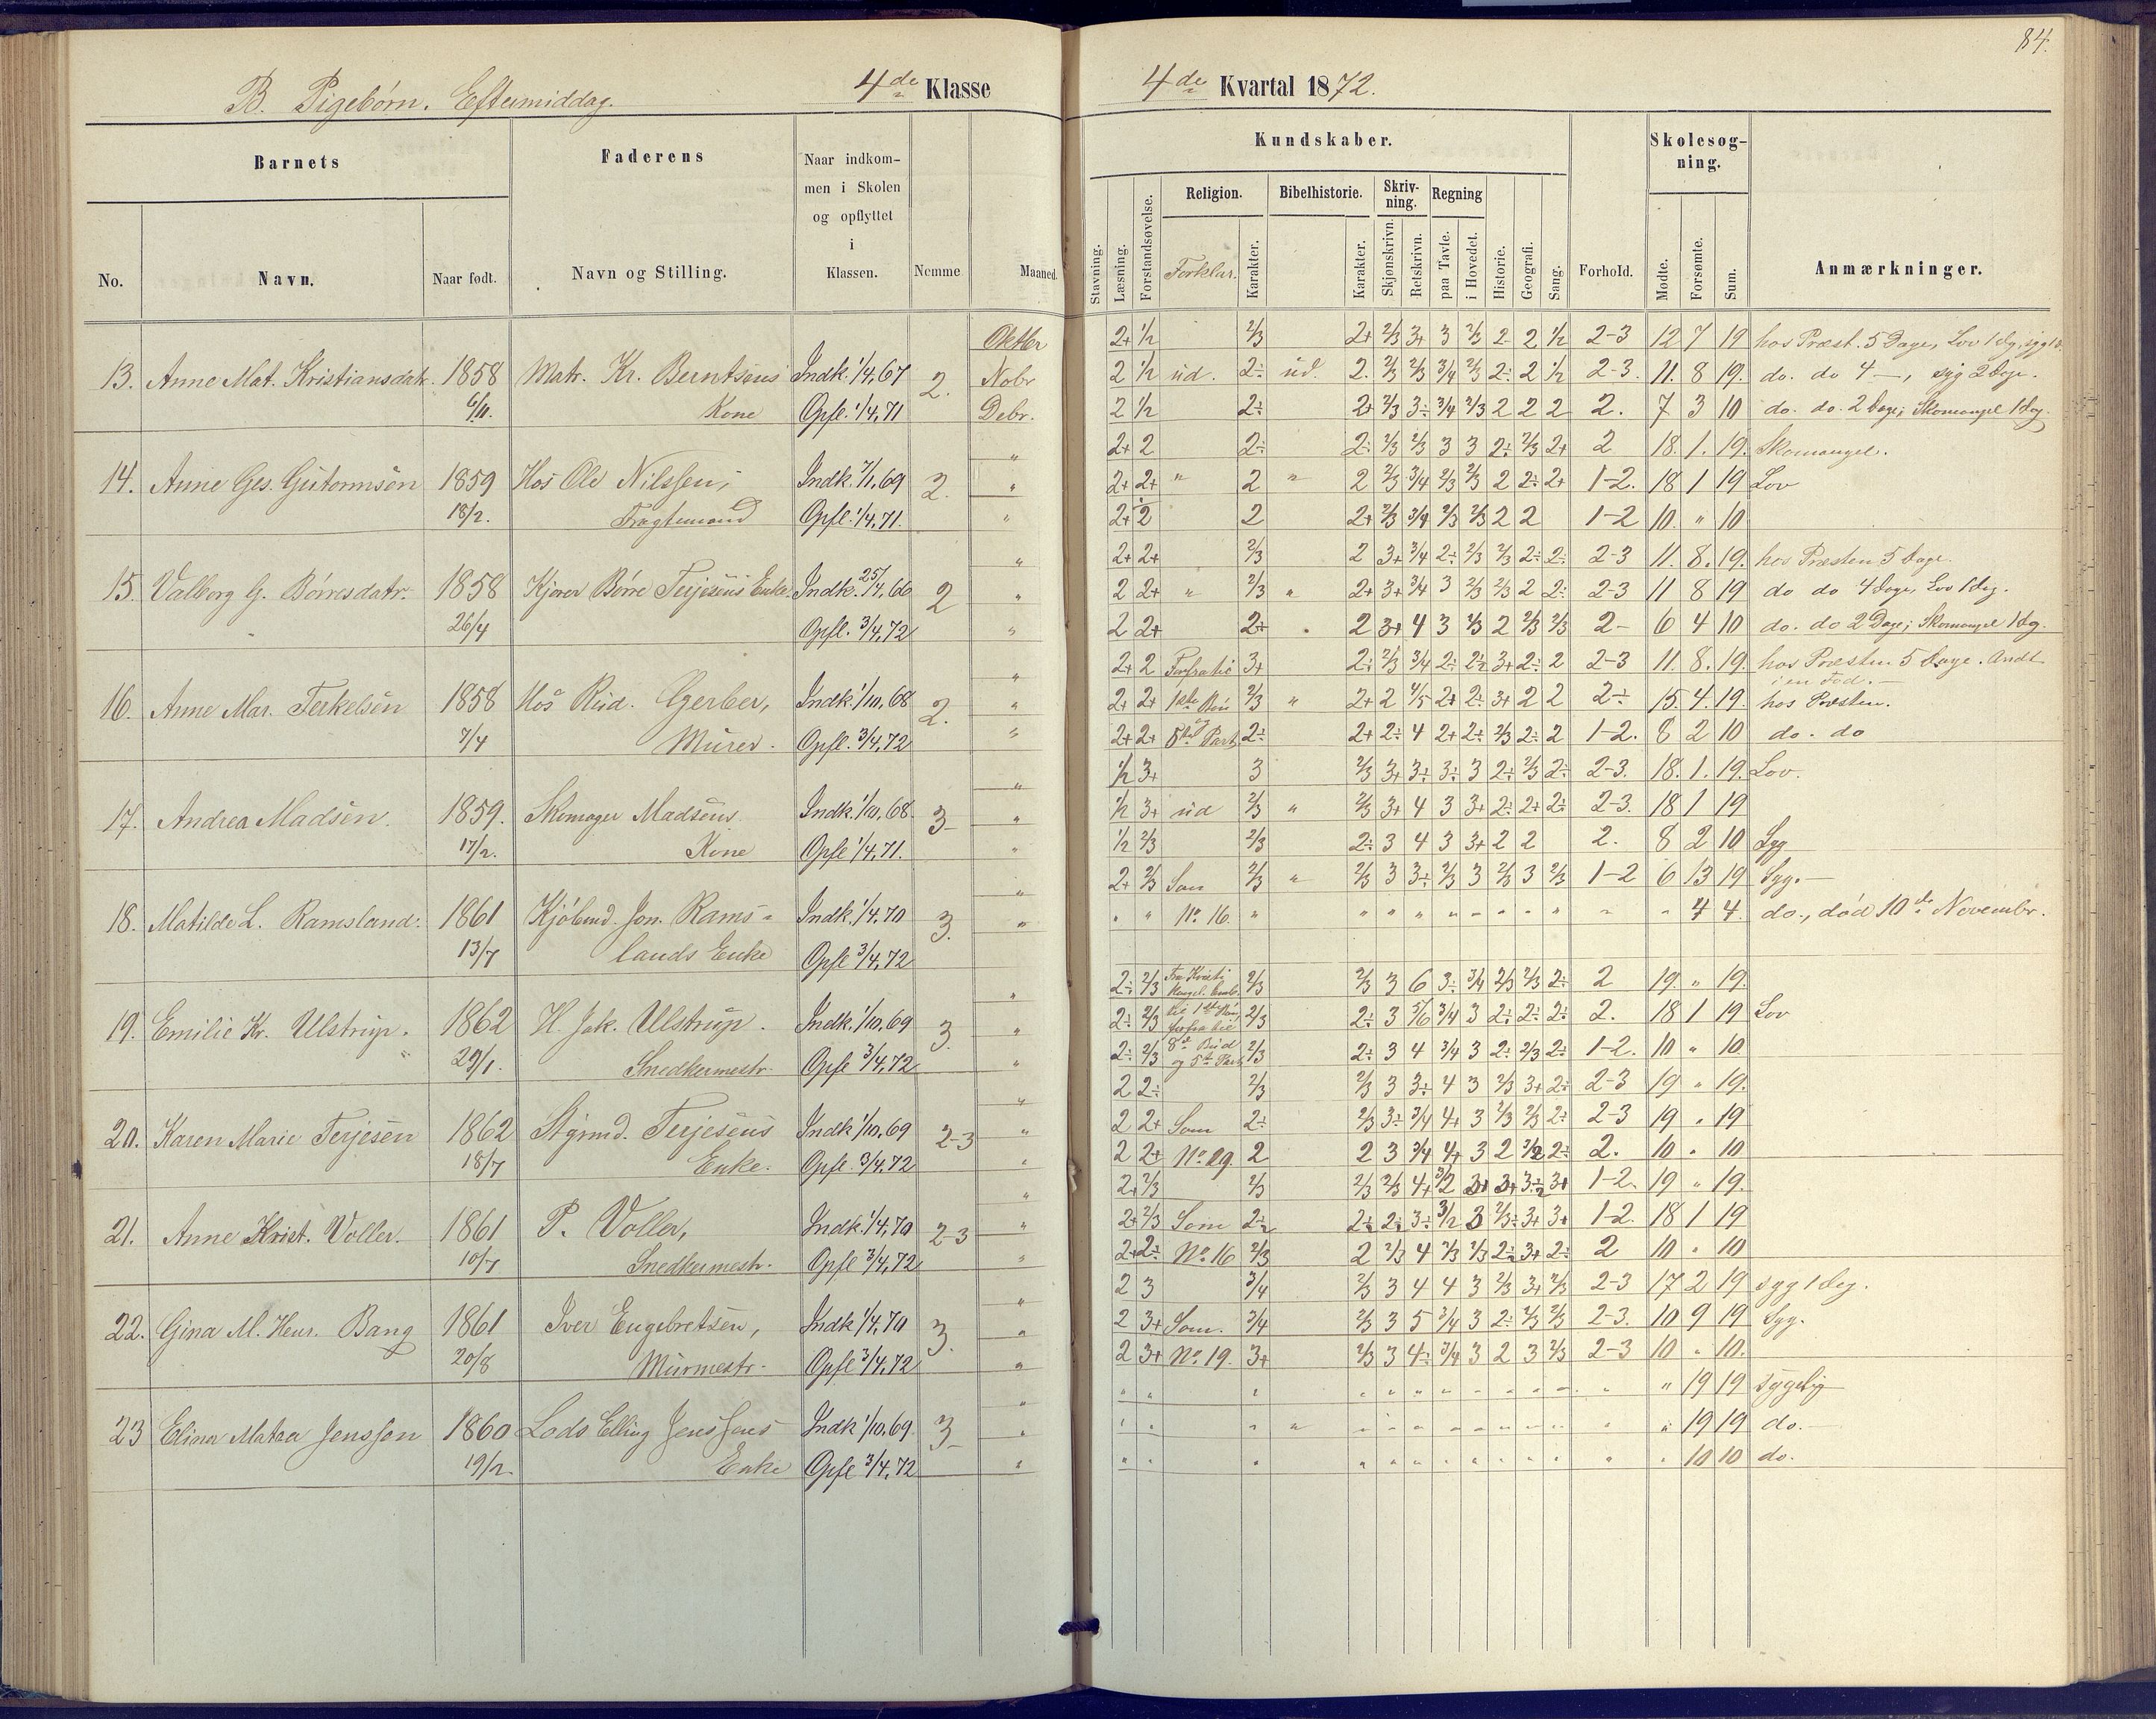 84.
B. Pigebørn. Eftermiddag. 4de Klasse
4de Kvartal 1872.
Barnets Faderens Naar indkommen i Skolen og opflyttet i Klassen. Nemme Maaned.
No. Navn. Naar født. Navn og Stilling.
Kundskaber. Skolesøgning.
Stavning. Læsning. Forstandsøvelse. Religion. Forklar. Karakter. Bibelhistorie. Karakter. Skrivning. Skjønskrivn. Retskrivn. Regning paa Tavle. i Hovedet. Historie. Geografi. Sang. Forhold. Mødte. Forsømte. Sum. Anmærkninger.
Oktbr 2+ 1/2 2/3 2+ 2/3 3+ 3 2/3 2 2 1/2 2-3 12 7 19 hos Præst. 5 Dage, Lov 1 dg,
13. Anne Mat. Kristiansdatr. 1858 Matr. Kr. Berntsens Indk. 1/4,67 2. Nobr 2 1/2 ud. 2÷ ud. 2. 2/3 2/3 3/4 2/3 2÷ 2 1/2 2-3. 11. 8 19. do. do 4 —, syg 2 Dage.
6/11. Kone Opfl. 1/4,71 Debr. 2 1/2 2÷ 2+ 2/3 3÷ 3/4 2/3 2 2 2 2. 7 3 10 do. do. 2 Dage; Skomangel 1 dag.
" 2+ 2 2÷ 2÷ 2/3 2/3 3 3 2÷ 2/3 2+ 2 18. 1. 19. Skomangel.
14. Anne Ges. Gutormsen 1859 Hos Ole Nilssen, Indk. 7/1,69 2. " 2+ 2+ " 2 " 2 2/3 3/4 2/3 2/3 2 2÷ 2+ 1-2. 18 1 19 Lov
18/2. Fragtemand Opfl. 1/4,71. " 2+ 2 2 2+ 2/3 3/4 2/3 2/3 2 2 1-2 10. " 10
" 2+ 2+ 2/3 2 3+ 3/4 2÷ 2/3 2/3 2÷ 2÷ 2-3 11. 8. 19. hos Præsten 5 Dage
15. Valborg G. Børresdatr. 1858 Børre Terjesens Enke. Indk. 25/4,66 2 " 2 2+ " 2/3 " 2+ 3+ 3/4 3 2/3 2/3 2 2÷ 2-3 11 8 19 do do 4 Dage, Lov 1 dag.
26/4 Opfl. 3/4,72 " 2 2+ 2+ 2 3+ 4 3 2/3 2 2/3 2/3 2- 6 4 10 do. do 2 Dage; Skomangel 1 dg.
" 2+ 2 Forfra til 3+ 2÷ 2/3 3/4 2÷ 3+ 2÷ 2 2-3 11. 8. 19. hos Præsten 5 Dage. Ondt i en Fod. —
16. Anne Mar. Terkelsen 1858 Hos Rud. Gerber, Indk. 1/10,68 2. " 2+ 2+ 1ste Bøn 2/3 " 2+ 2 4/5 2+ 2÷ 3+ 2 2 2÷ 15. 4. 19. hos Præsten.
7/4 Murer. Opfl. 3/4,72 " 2+ 2+ og Part. 2÷ 2+ 2÷ 4 2+ 2÷ 2/3 2÷ 2 1-2. 8 2 10 do. do
" 1/2 3+ 3 2/3 3+ 3÷ 3÷ 3 2÷ 2/3 2÷ 2-3. 18. 1. 19. Lov.
17. Andrea Madsen. 1859. Skomager Madsens Indk. 1/10,68. 3 " 1/2 3+ ud 2/3 " 2/3 3+ 4 3 3+ 2÷ 2+ 2÷ 2-3. 18 1 19
17/2. Kone Opfl 1/4,71. " 1/2 2/3 2/3 2÷ 3 4 3 3+ 2 2 2. 8 2 10 Syg
" 2+ 2/3 Som 2/3 " 2/3 3 3÷ 2/3 3 2/3 3 2/3 1-2 6 13 19 Syg. —
18. Matilde L. Ramsland. 1861 Kjøbmd. Jon. Rams= Indk. 1/4,70 3. " " " No. 16. " " " " " " " " " " " 4 4 do., død 10de Novembr.
13/7 lands Enke Opfl 3/4,72
" 2÷ 2/3 Fra Kristi 2/3 2/3 3 6 3÷ 3/4 2/3 2/3 2÷ 2 19. " 19.
19. Emilie Kr. Ulstrup. 1862 H. Jak. Ulstrup. Indk. 1/10,69 3. " 2÷ 2/3 til 1ste Bøn, forfra til 2/3 2÷ 3 5/6 3/4 3 2÷ 2÷ 2÷ 2. 18 1 19 Lov
29/1. Snedkermestr. Opfl 3/4,72 " 2÷ 2/3 8de Bud og 5te Part 2/3 2÷ 3 4 3/4 3 2÷ 2/3 2÷ 1-2. 10 " 10
" 2 2÷ 2/3 2/3 3 3÷ 4 3 2/3 3+ 2÷ 2-3 19 " 19.
20. Karen Marie Terjesen 1862 Stgmd. Terjesens Indk 1/10,69 2-3 " 2 2+ Som 2÷ 2/3 3÷ 3/4 4+ 3 2/3 2/3 2÷ 2-3 19 " 19
18/7 Enke. Opfl. 3/4,72 " 2 2+ No. 19. 2 2 3 3/4 4+ 3 2 2÷ 2. 10 " 10
" 2+ 2/3 2/3 2/3 2/3 4+ 3+ 3+ 3+ 1-2. 19 " 19.
21. Anne Krist. Voller. 1861 P. Voller, Indk. 1/4,70 2-3 " 2+ 2/3 Som 2÷ 2÷ 2÷ 3÷ 3 3+ 3+ 1-2. 18 1 19
10/7 Snedkermestr. Opfl 3/4,72 " 2+ 2÷ No. 16 2/3 2 2/3 4 2/3 2/3 2÷ 3+ 2÷ 2 10 " 10
" 2 3 3/4 2/3 3 4 4 3 2/3 3+ 2/3 2-3 17 2 19 syg 1 dag.
22. Gina M. Henr. Bang 1861 Iver Engebretsen, Indk 1/4,70 3. " 2 3+ Som. 3/4 2/3 3 5 3/4 3 2÷ 2/3 2/3 2-3. 10 9 19 Syg.
20/8 Murmestr. Opfl 3/4,72 " 2 3+ No. 19. 3+ 2/3 3 4÷ 3/4 3 2 3 2/3 2-3 10 " 10.
" " " " " " " " " " " " " " " 19 19 sygelig
23 Elina Matea Jenssen 1860 Lods Elling Jenssens Indk 1/10,69. 3 " " " " " " " " " " " " " " " " 19 19 do. —
19/2. Enke Opfl 3/4,72 " " " " " " " " " " " " " " " 10 10 do.